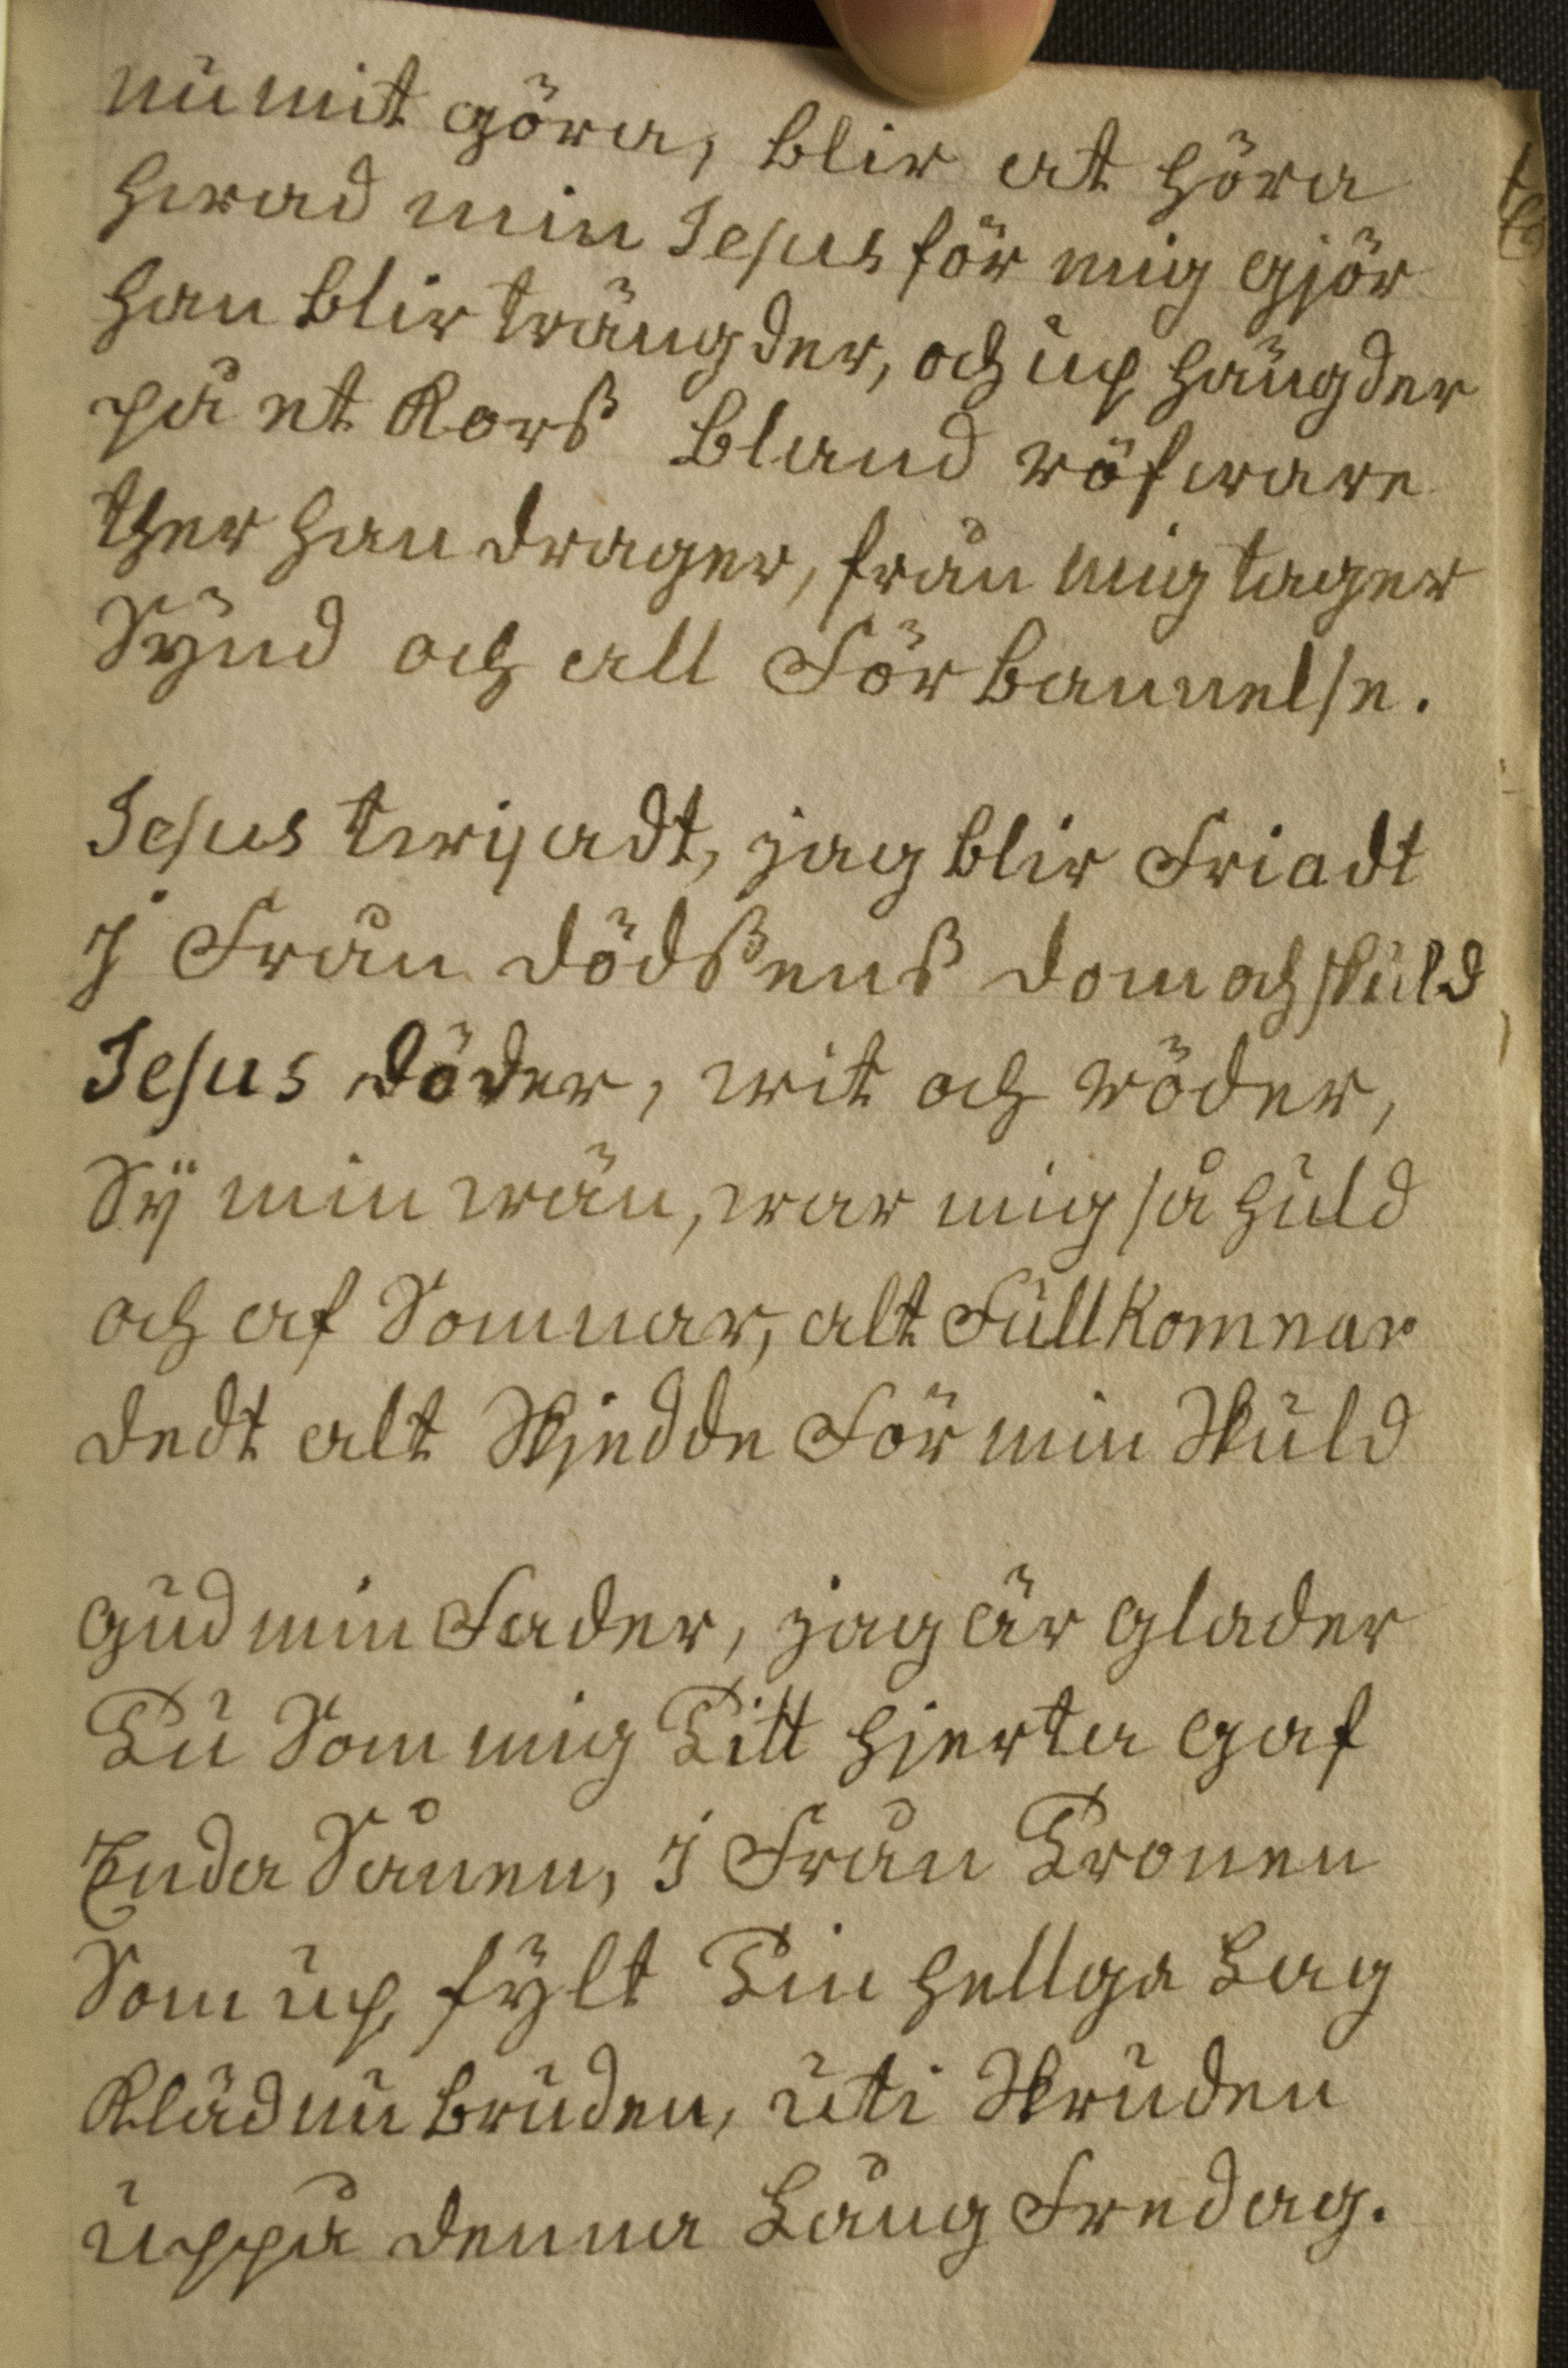 nu mit göra, blir at höra
hwad min Jesus för mig gjör
han blir trängder, och up hängder
på et Kors bland röfware
ther han drager, från mig tager
Synd och all Förbannelse.
Jesus twijadt, jag blir Friadt
J Från dödsens dom och skuld
Jesus döder, wit och röder,
Sÿ min wän, war mig så huld
och af Somnar, alt Fullkomnar
dedt alt Skjedde För min Skuld
gud min Fader, jag är glader
Tu Som mig Titt hjerta gaf
Enda Sånen, J Från Tronen
Som up fylt Tin hellga Lag
Kläd nu bruden, uti Skruden
uppå denna Lång Fredag.